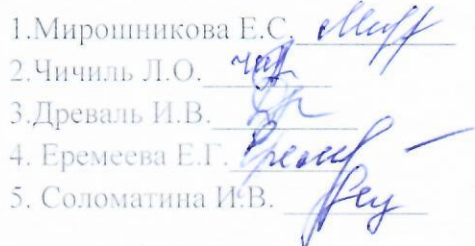 1.Мирошникова Е.С.
2.Чичиль Л.О.
3.Древаль И.В.
4. Еремеева Е.Г.
5. Соломатина И.В.